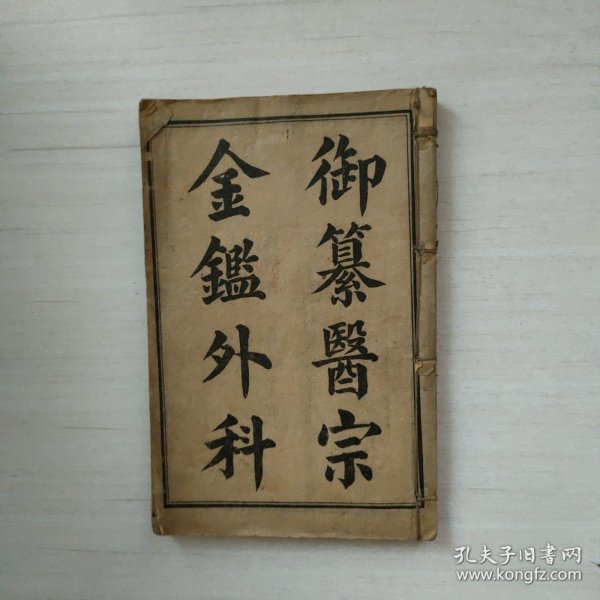 御纂醫宗
金鑑外科
孔夫子旧书网
www.kongfz.com